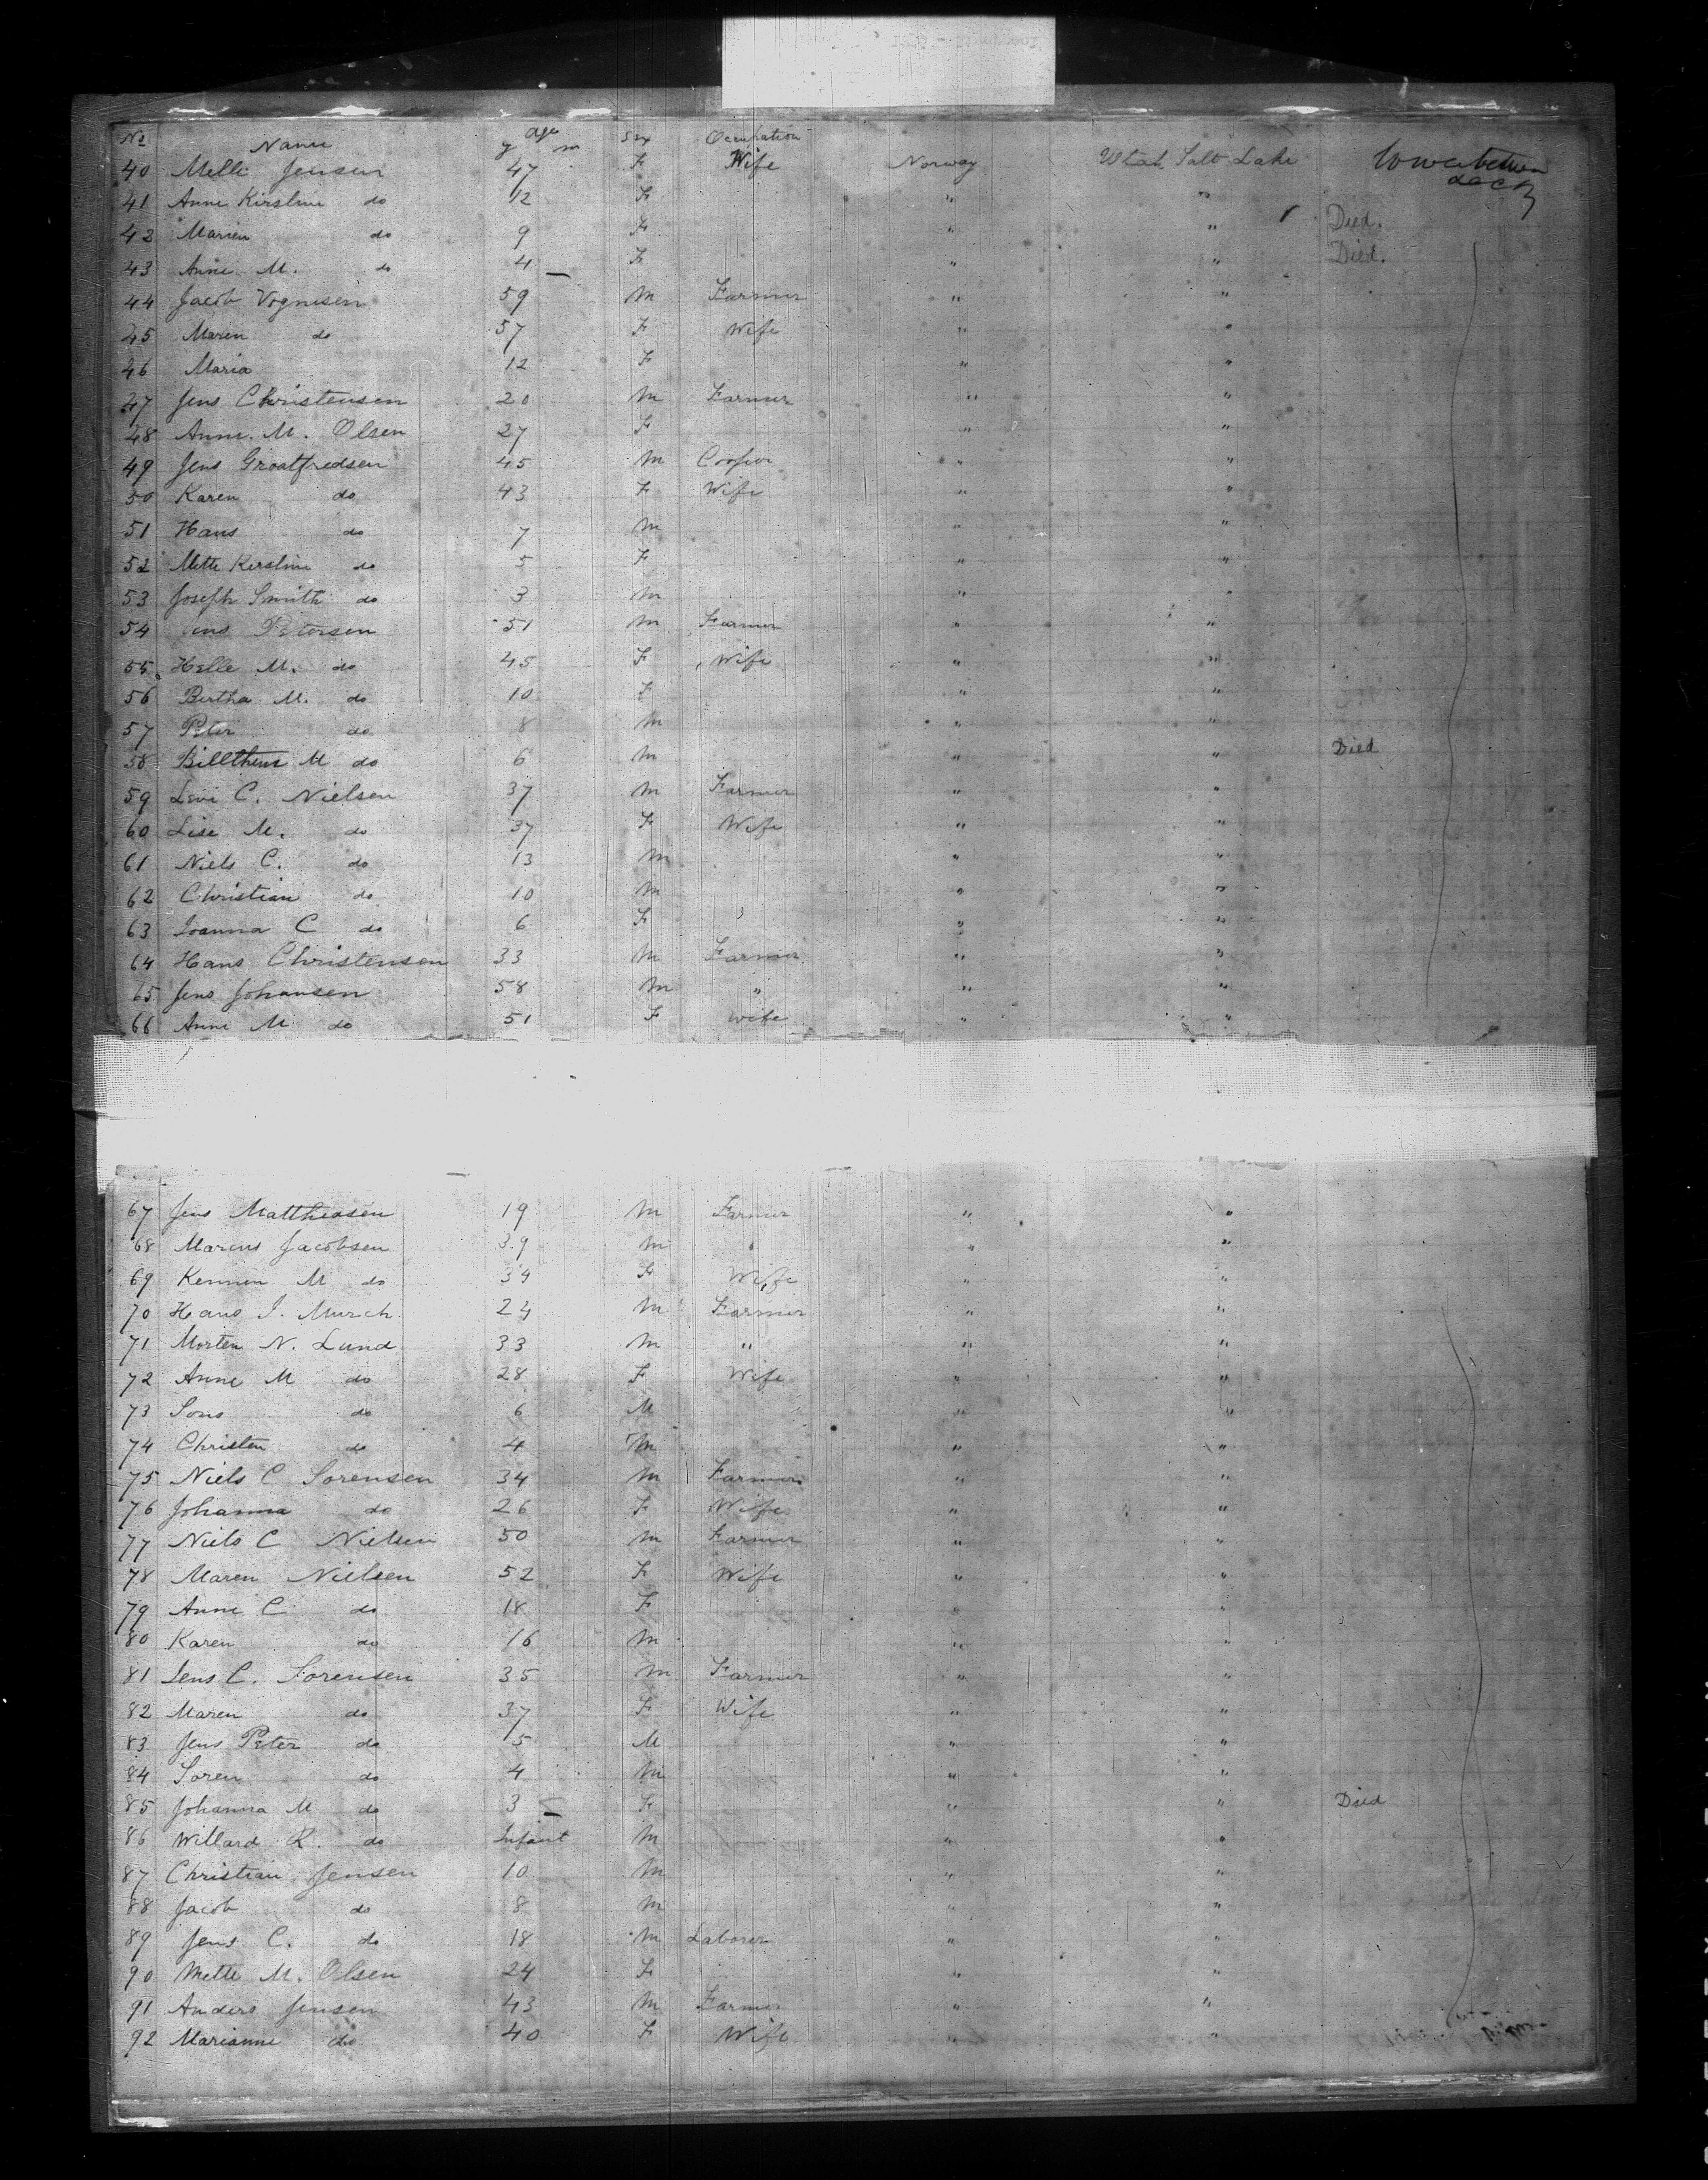 No Name Age y m Sex Occupation
40 Melle Jensen 47 F Wife Norway Utah Salt Lake Lower between deck
41 Anne Kirstine do 12 F " "
42 Maren do 9 F " " Died.
43 Anne M. do 4 F " " Died.
44 Jacob Vognesen 59 M Farmer " "
45 Maren do 57 F Wife " "
46 Maria 12 F " "
47 Jens Christensen 20 M Farmer " "
48 Anne. M. Olsen 27 F " "
49 Jens Groatfredsen 45 M Cooper " "
50 Karen do 43 F Wife " "
51 Hans do 7 M " "
52 Mette Kirstine do 5 F " "
53 Joseph Smith do 3 M " "
54 Jens Petersen 51 M Farmer " "
55 Helle M. do 45 F Wife " "
56 Bertha M. do 10 F " "
57 Peter do 8 M " "
58 M do 6 M " " Died
59 Levi C. Nielsen 37 M Farmer " "
60 Lise M. do 37 F Wife " "
61 Niels C. do 13 M " "
62 Christian do 10 M " "
63 Joanna C do 6 F " "
64 Hans Christensen 33 M Farmer " "
65 Jens Johansen 58 M " " "
66 Anne M do 51 F Wife " "
67 Jens Matthiasen 19 M Farmer " "
68 Marcus Jacobsen 39 M " " "
69 Kennen M do 34 F Wife " "
70 Hans J. Murch 24 M Farmer " "
71 Morten N. Lund 33 M " " "
72 Anne M do 28 F Wife " "
73 Sons do 6 M " "
74 Christen do 4 M " "
75 Niels C Sorensen 34 M Farmer " "
76 Johanna do 26 F Wife " "
77 Niels C Nielsen 50 M Farmer " "
78 Maren Nielsen 52 F Wife " "
79 Anne C do 18 F " "
80 Karen do 16 M " "
81 Jens C. Sorensen 35 M Farmer " "
82 Maren do 37 F Wife " "
83 Jens Peter do 5 M " "
84 Soren do 4 M " "
85 Johanna M do 3 F " " Died
86 Willard R. do Infant M " "
87 Christian Jensen 10 M " "
88 Jacob do 8 M " "
89 Jens C. do 18 M Laborer " "
90 Mette M. Olsen 24 F " "
91 Anders Jensen 43 M Farmer " "
92 Marianne do 40 F Wife " "